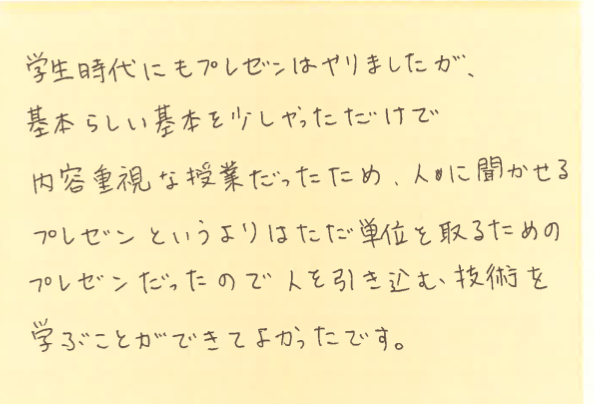 学生時代にもプレゼンはやりましたが、
基本らしい基本を少しやっただけで
内容重視な授業だったため、人に聞かせる
プレゼンというよりはただ単位を取るための
プレゼンだったので人を引き込む、技術を
学ぶことができてよかったです。